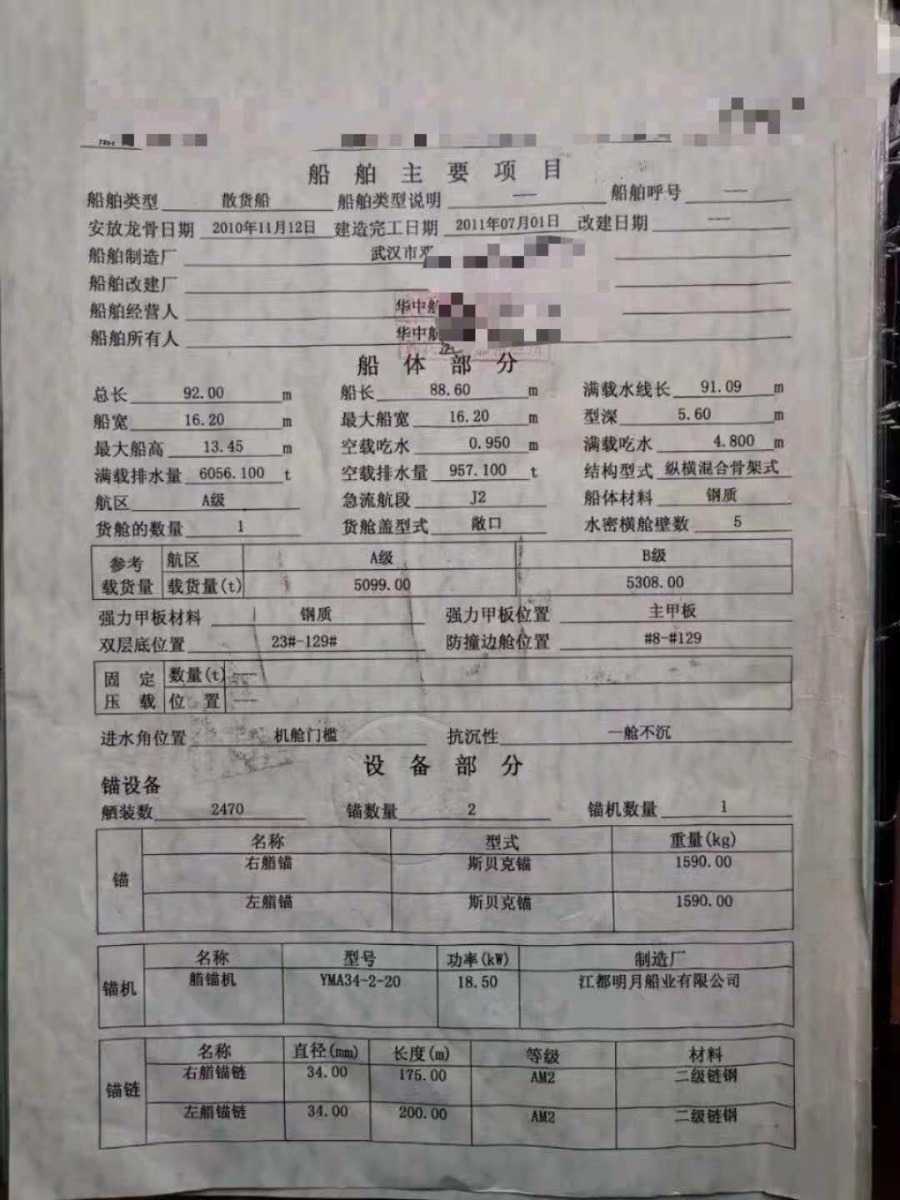 船舶主要项目
船舶类型 散货船 船舶类型说明 --- 船舶呼号 ---
安放龙骨日期 2010年11月12日 建造完工日期 2011年07月01日 改建日期 ---
船舶制造厂 武汉市
船舶改建厂
船舶经营人 华中航
船舶所有人 华中航
船体部分
总长 92.00 m 船长 88.60 m 满载水线长 91.09 m
船宽 16.20 m 最大船宽 16.20 m 型深 5.60 m
最大船高 13.45 m 空载吃水 0.950 m 满载吃水 4.800 m
满载排水量 6056.100 t 空载排水量 957.100 t 结构型式 纵横混合骨架式
航区 A级 急流航段 J2 船体材料 钢质
货舱的数量 1 货舱盖型式 敞口 水密横舱壁数 5
参考 航区 A级 B级
载货量 载货量(t) 5099.00 5308.00
强力甲板材料 钢质 强力甲板位置 主甲板
双层底位置 23#-129# 防撞边舱位置 #8-#129
固定 数量(t) ---
压载 位置 ---
进水角位置 机舱门槛 抗沉性 一舱不沉
设备部分
锚设备
舾装数 2470 锚数量 2 锚机数量 1
锚 名称 型式 重量(kg)
右艏锚 斯贝克锚 1590.00
左艏锚 斯贝克锚 1590.00
锚机 名称 型号 功率(kW) 制造厂
艏锚机 YMA34-2-20 18.50 江都明月船业有限公司
锚链 名称 直径(mm) 长度(m) 等级 材料
右艏锚链 34.00 175.00 AM2 二级链钢
左艏锚链 34.00 200.00 AM2 二级链钢